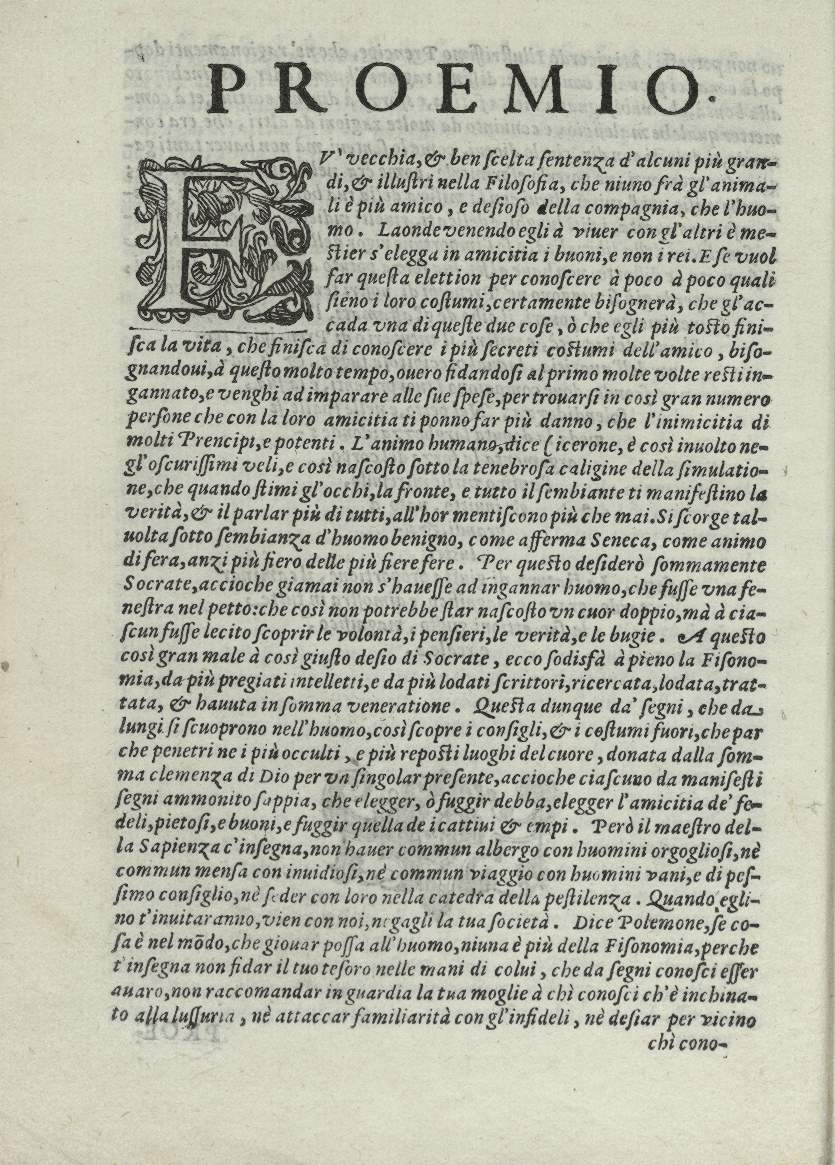 PROEMIO.
EV' vecchia,& ben ſcelta ſentenza d'alcuni più gran-
di,& illuſtri nella Filoſofia, che niuno frà gl'anima-
li è più amico, e deſioſo della compagnia, che l'huo-
mo. Laonde venendo egli à viuer con gl'altri è me-
ſtier s'elegga in amicitia i buoni,e non i rei. E ſe vuol
far queſta elettion per conoſcere à poco à poco quali
ſieno i loro coſtumi,certamente biſognerà, che gl'ac-
cada vna di queſte due coſe, ò che egli più toſto fini-
ſca la vita, che finiſca di conoſcere i più ſecreti coſtumi dell'amico, biſo-
gnandoui,à queſto molto tempo,ouero fidandoſi al primo molte volte reſti in-
gannato,e venghi ad imparare alle ſue ſpeſe,per trouarſi in così gran numero
perſone che con la loro amicitia ti ponno far più danno, che l'inimicitia di
molti Prencipi,e potenti. L'animo humano,dice Cicerone, è così inuolto ne-
gl'oſcuriſſimi veli,e così naſcoſto ſotto la tenebroſa caligine della ſimulatio-
ne,che quando ſtimi gl'occhi,la fronte, e tutto il ſembiante ti manifeſtino la
verità,& il parlar più di tutti,all'hor mentiſcono più che mai. Si ſcorge tal-
uolta ſotto ſembianza d'huomo benigno, come afferma Seneca, come animo
di fera,anzi più fiero delle più fiere fere. Per queſto deſiderò ſommamente
Socrate,accioche giamai non s'haueſſe ad ingannar huomo,che fuſſe vna fe-
neſtra nel petto:che così non potrebbe ſtar naſcoſto vn cuor doppio,mà à cia-
ſcun fuſſe lecito ſcoprir le volontà,i penſieri,le verità,e le bugie. A queſto
così gran male à così giuſto deſio di Socrate, ecco ſodisfà à pieno la Fiſono-
mia,da più pregiati intelletti,e da più lodati ſcrittori,ricercata,lodata,trat-
tata, & hauuta in ſomma veneratione. Queſta dunque da' ſegni, che da
lungi ſi ſcuoprono nell'huomo,così ſcopre i conſigli,& i coſtumi fuori,che par
che penetri ne i più occulti, e più repoſti luoghi del cuore, donata dalla ſom-
ma clemenza di Dio per vn ſingolar preſente,accioche ciaſcuno da manifeſti
ſegni ammonito ſappia, che elegger, ò fuggir debba,elegger l'amicitia de' fe-
deli,pietoſi,e buoni,e fuggir quella de i cattiui & empi. Però il maeſtro del-
la Sapienza c'inſegna,non hauer commun albergo con huomini orgoglioſi,nè
commun menſa con inuidioſi,nè commun viaggio con huomini vani,e di peſ-
ſimo conſiglio,nè ſeder con loro nella catedra della peſtilenza. Quando egli-
no t'inuitaranno,vien con noi,negagli la tua ſocietà. Dice Polemone,ſe co-
ſa è nel mōdo,che giouar poſſa all'huomo,niuna è più della Fiſonomia,perche
t'inſegna non fidar il tuo teſoro nelle mani di colui, che da ſegni conoſci eſſer
auaro,non raccomandar in guardia la tua moglie à chì conoſci ch'è inchina-
to alla luſſuria, nè attaccar familiarità con gl'infideli, nè deſiar per vicino
chì cono-